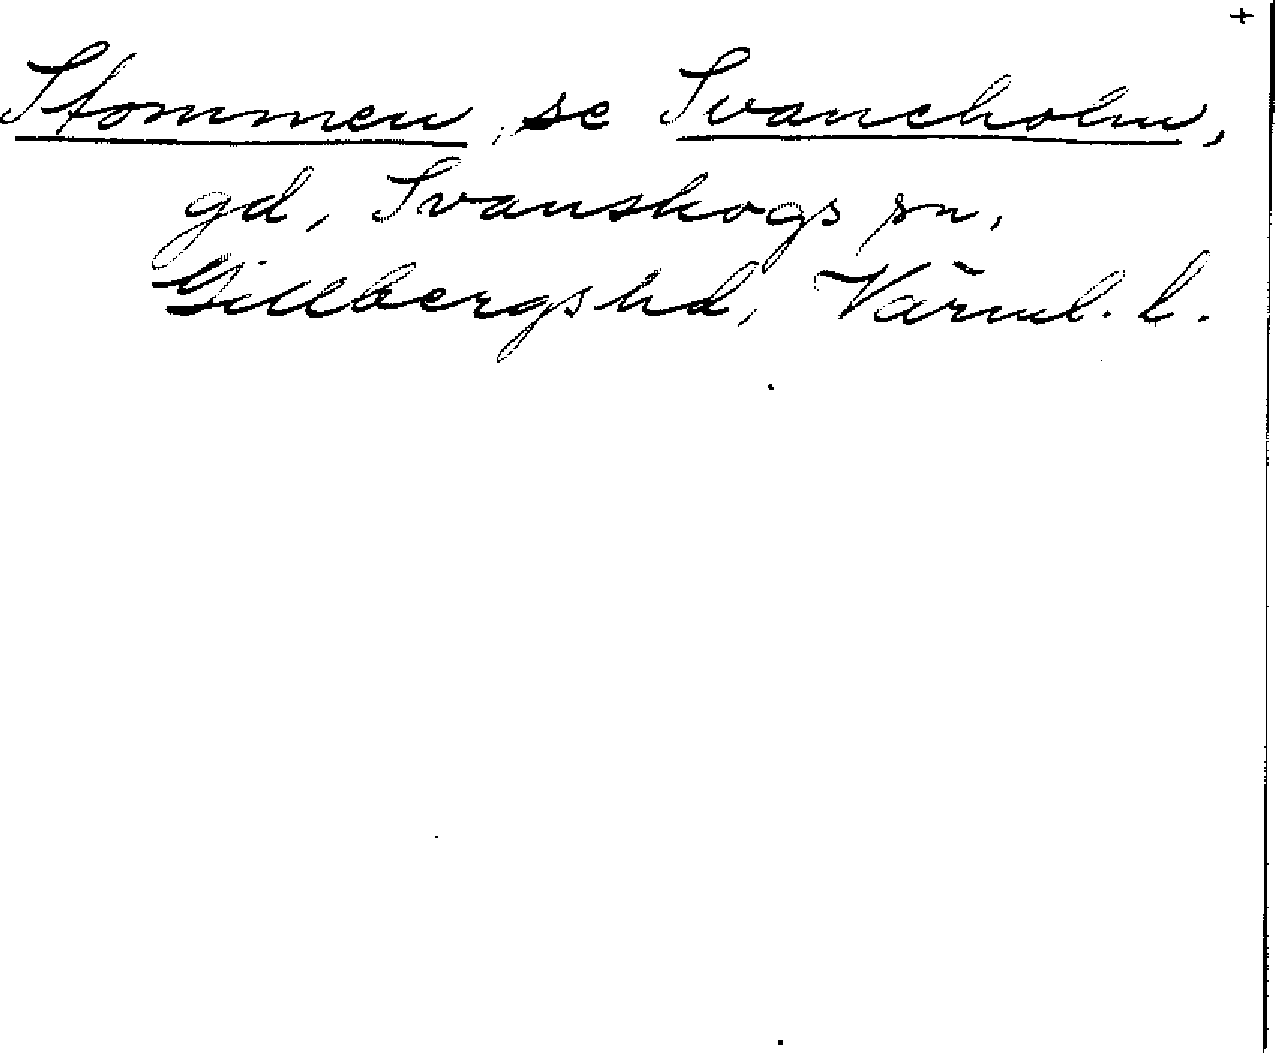 +
Stommen, se Svaneholm,
gd, Svanskogs sn,
Gillbergs hd, Värml. l.